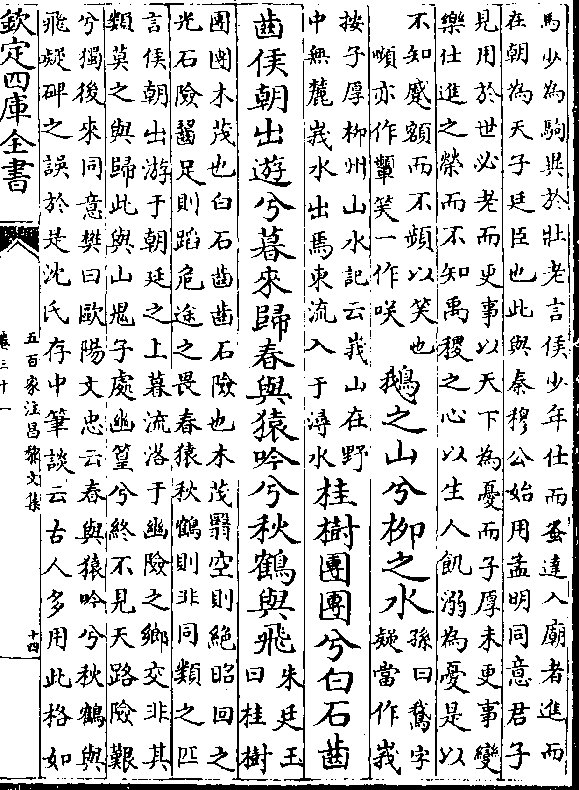 馬少為駒與於壯老言侯少年仕而蚤達入廟者進而
在朝為天子廷臣也此與秦穆公始用孟明同意君子
見用於世必老而更事以天下為憂而子厚未更事變
樂仕進之榮而不知禹稷之心以生人飢溺為憂是以
不知蹙額而不頻以笑也
嚬亦作顰笑一作咲
鵝之山兮柳之水
孫曰鵞字
疑當作峩
按子厚柳州山水記云峩山在野
中無麓峩水出焉東流入于潯水
桂樹團團兮白石齒
齒侯朝出遊兮暮來歸春與猿吟兮秋鶴與飛
朱廷玉
曰桂樹
團團木茂也白石齒齒石險也木茂翳空則絕昭回之
光石險齧足則蹈危途之畏春猿秋鶴則非同類之匹
言侯朝出游于朝廷之上暮流落于幽險之鄉交非其
類莫之與歸此與山鬼子處幽篁兮終不見天路險艱
兮獨後來同意樊曰歐陽文忠云春與猿吟兮秋鶴與
飛疑碑之誤於是沈氏存中筆談云古人多用此格如
欽定四庫全書
五百家注昌黎文集
卷三十一
十四